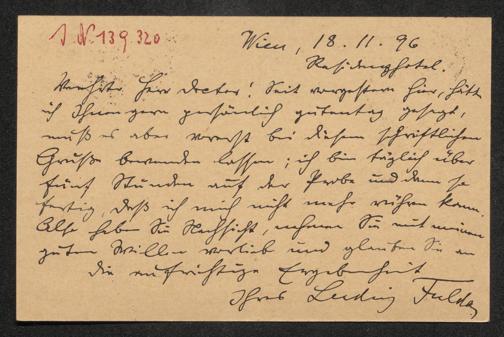 I N 139 320
Wien, 18. 11. 96
Residenzhotel.
Verehrter Herr Doctor! Seit vorgestern hier, hätte
ich Ihnen gern persönlich gutentag gesagt,
muß es aber vorerst bei diesem schriftlichen
Gruße bewenden lassen; ich bin täglich über
fünf Stunden auf der Probe und dann so
fertig, daß ich mich nicht mehr rühren kann.
Also haben Sie Nachsicht, nehmen Sie mit meinem
guten Willen vorlieb und glauben Sie an
die aufrichtige Ergebenheit
Ihres Ludwig Fulda